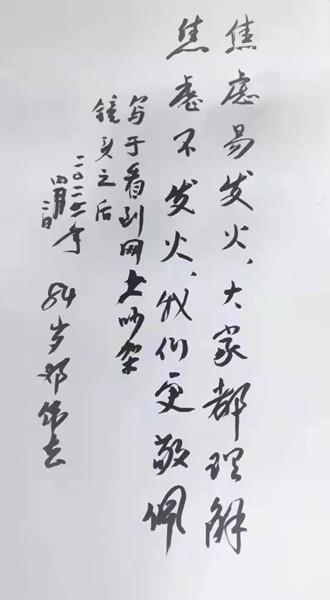 焦虑易发火、大家都理解
焦虑不发火、我们更敬佩
写于看到网上吵架
镜头之后
二〇二二年
四月二日
84岁邓伟志